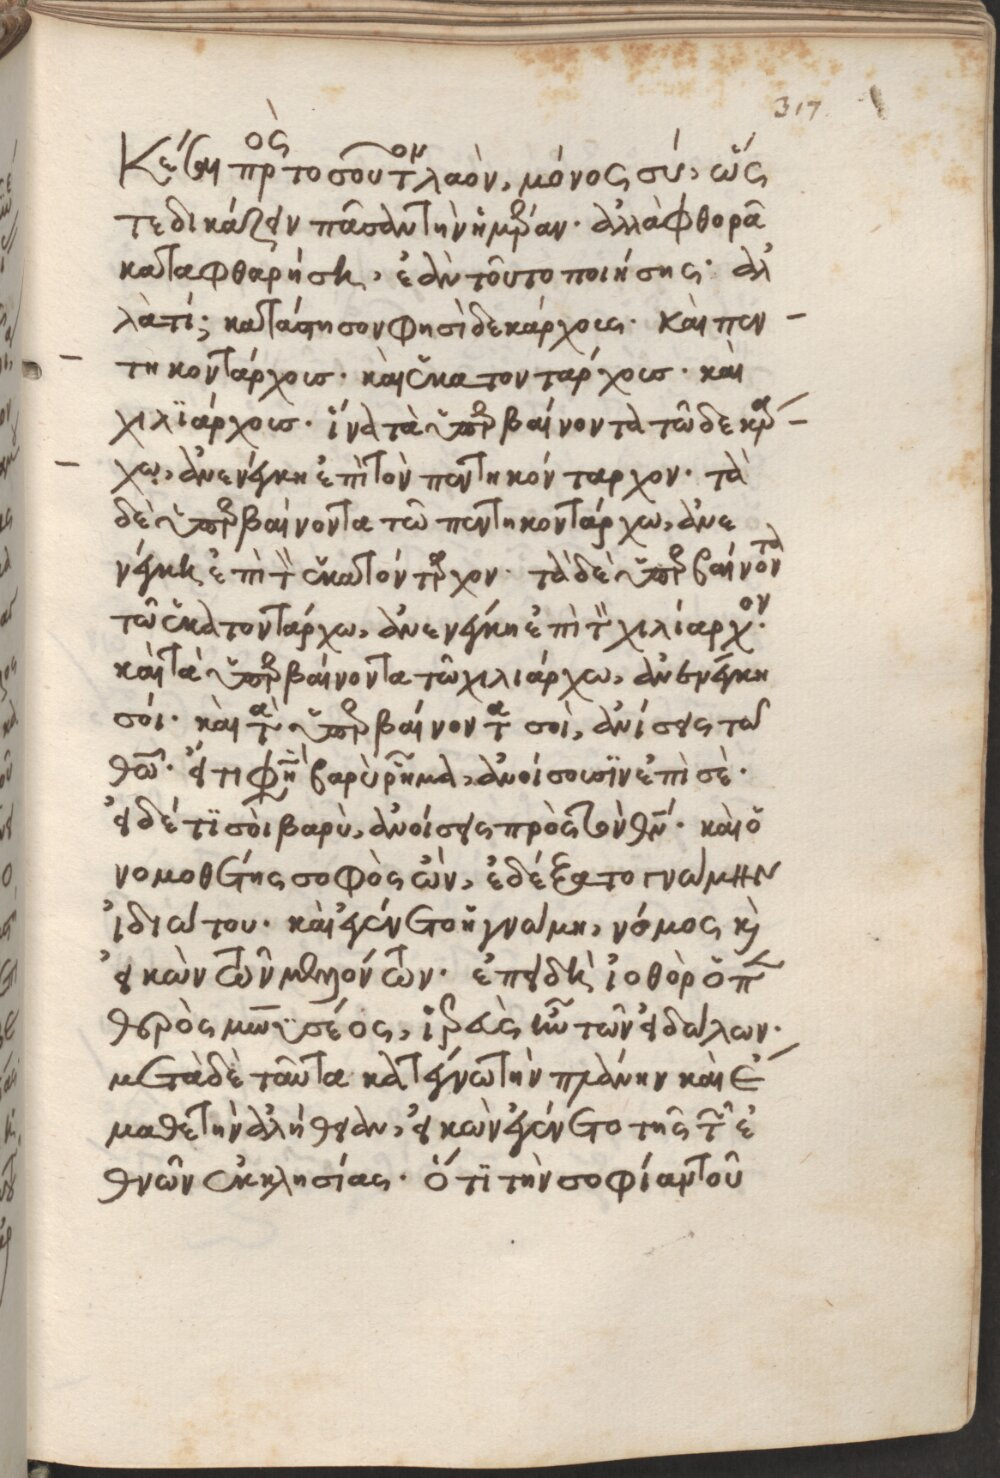 317
Κέισαι πρὸς τοσοῦτον λαὸν, μόνος σύ, ὥς
τε δικάζειν πᾶσαν τὴν ἡμέραν· ἀλλὰ φθορᾶ
καταφθαρήση, ἐὰν τοῦτο ποιήσης· ἀλ
λὰ τί; κατάστησον φησὶ δεκάρχους· καὶ πεν
τηκοντάρχους· καὶ ἑκατοντάρχους· καὶ
χιλϊάρχους· ἵνα τὰ ὑπερβαίνοντα τῶ δεκάρ
χω, ἀνενέγκη ἐπὶ τὸν πεντηκόνταρχον· τὰ
δὲ ὑπερβαίνοντα τῶ πεντηκοντάρχω, ἀνε
νέγκη ἐπὶ τὸν ἑκατόνταρχον· τὰ δὲ ὑπερβαίνοντα
τῶ ἑκατοντάρχω, ἀνενέγκη ἐπὶ τὸν χιλίαρχον·
καὶ τὰ ὑπερβαίνοντα τῶ χιλιάρχω, ἀνενέγκη
σόι· καὶ τὰ ὑπερβαίνοντα σοὶ, ἀνίσεις τῶ
θῶ· εἴ τι φησὶ βαρὺ ῥῆμα, ἀνοίσουσϊν ἐπὶ σὲ·
εἰ δέ τϊ σὸι βαρὺ, ἀνοίσεις πρὸς τὸν θν· καὶ ὁ
νομοθέτης σοφὸς ὢν, ἐδέξατο γνώμην
ἰδιώτου· καὶ ἐγένετο ἡ γνώμη, νόμος καὶ
εἰκὼν τῶν μελλόντων· ἐπειδὴ ἰοθὸρ ὁ πεν
θερὸς μωϋσέος, ἱερεὺς ἦν τῶν εἰδώλων·
μετὰ δὲ ταῦτα κατέγνω τὴν πλάνην καὶ ἔ
μαθε τὴν ἀλήθειαν, εἰκὼν ἐγένετο τῆς τῶν ἐ
θνῶν ἐκκλησίας· ὅτϊ τὴν σοφίαν τοῦ